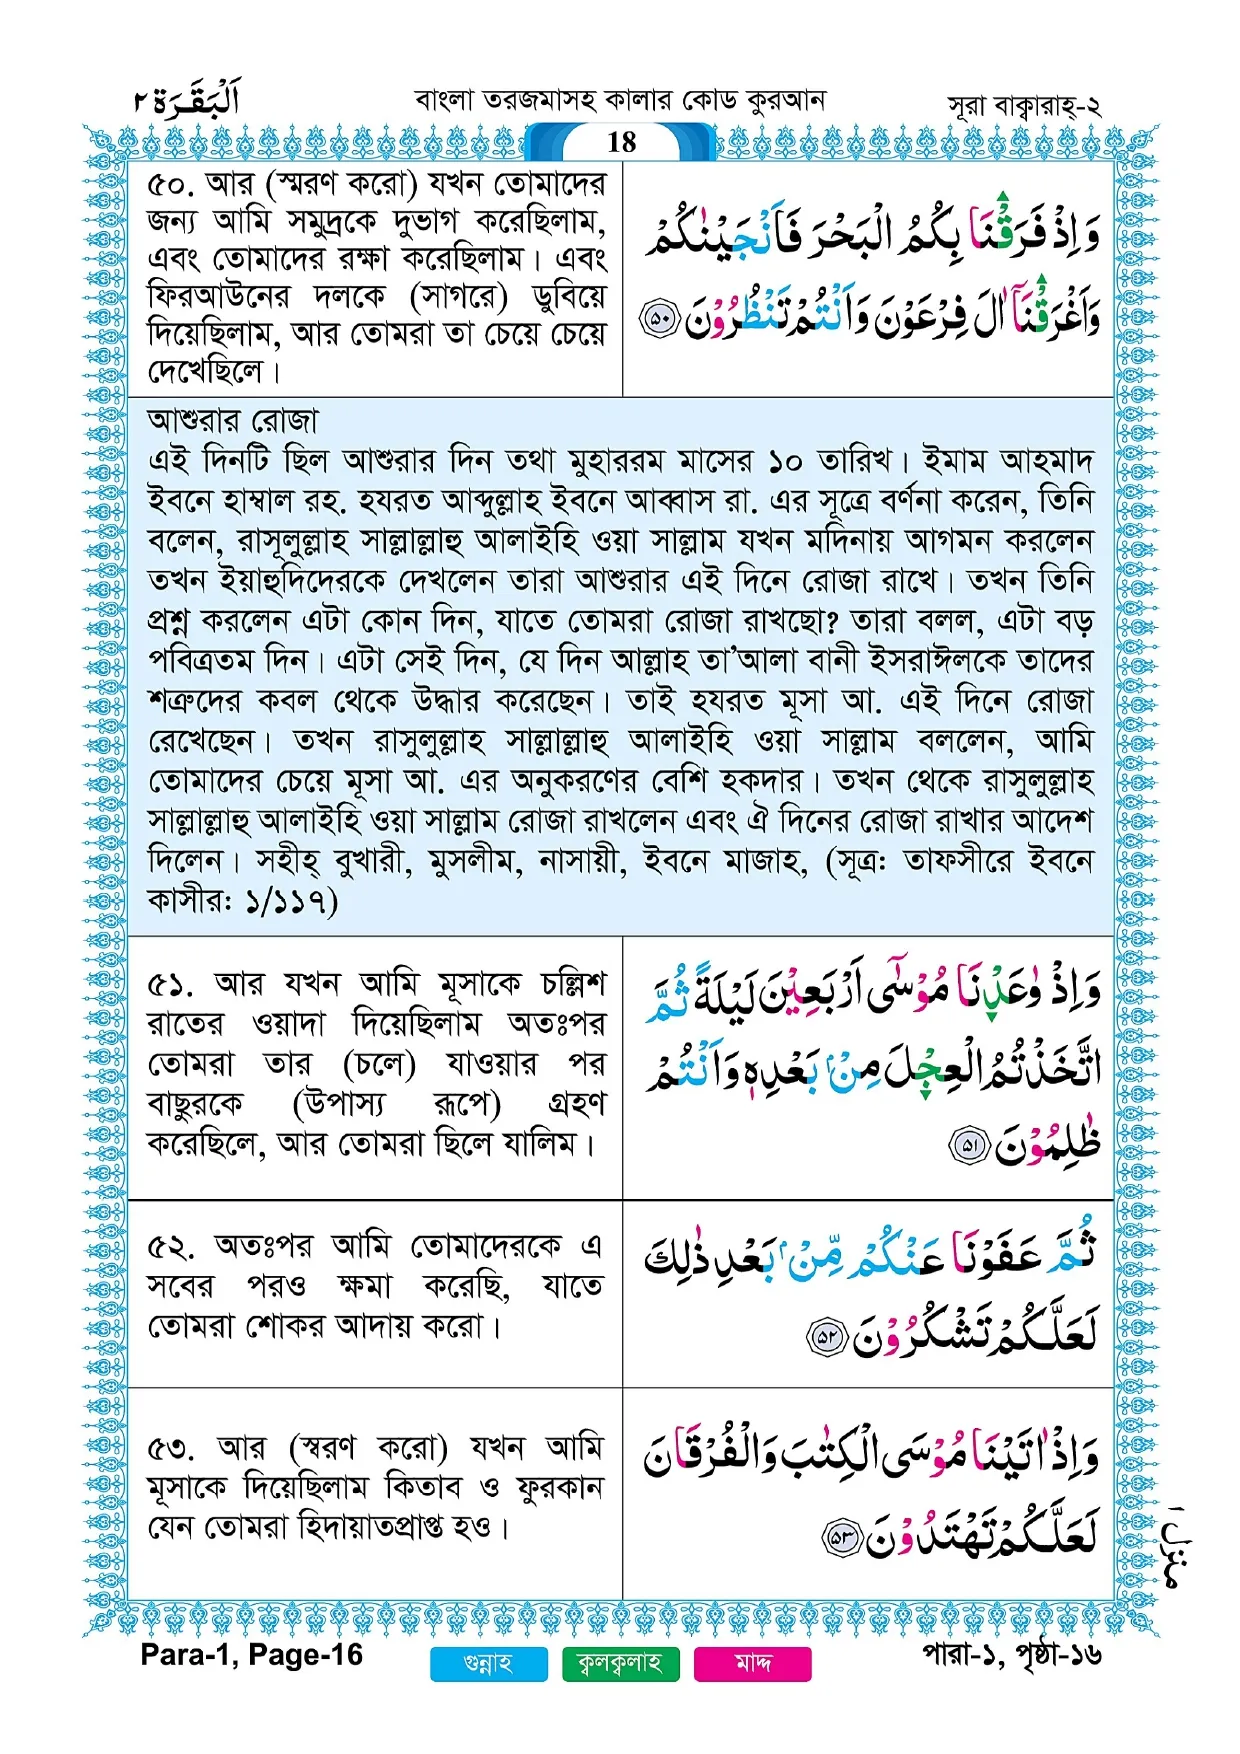 اَلْبَقَرَة ٢
বাংলা তরজমাসহ কালার কোড কুরআন
সূরা বাক্বারাহ্-২
18
৫০. আর (স্মরণ করো) যখন তোমাদের
জন্য আমি সমুদ্রকে দুভাগ করেছিলাম,
এবং তোমাদের রক্ষা করেছিলাম। এবং
ফিরআউনের দলকে (সাগরে) ডুবিয়ে
দিয়েছিলাম, আর তোমরা তা চেয়ে চেয়ে
দেখেছিলে।
وَاِذْ فَرَقْنَا بِكُمُ الْبَحْرَ فَاَنْجَيْنٰكُمْ
وَاَغْرَقْنَآ اٰلَ فِرْعَوْنَ وَاَنْتُمْ تَنْظُرُوْنَ ۵۰
আশুরার রোজা
এই দিনটি ছিল আশুরার দিন তথা মুহাররম মাসের ১০ তারিখ। ইমাম আহমাদ
ইবনে হাম্বাল রহ. হযরত আব্দুল্লাহ ইবনে আব্বাস রা. এর সূত্রে বর্ণনা করেন, তিনি
বলেন, রাসূলুল্লাহ সাল্লাল্লাহু আলাইহি ওয়া সাল্লাম যখন মদিনায় আগমন করলেন
তখন ইয়াহুদিদেরকে দেখলেন তারা আশুরার এই দিনে রোজা রাখে। তখন তিনি
প্রশ্ন করলেন এটা কোন দিন, যাতে তোমরা রোজা রাখছো? তারা বলল, এটা বড়
পবিত্রতম দিন। এটা সেই দিন, যে দিন আল্লাহ তা’আলা বানী ইসরাঈলকে তাদের
শত্রুদের কবল থেকে উদ্ধার করেছেন। তাই হযরত মূসা আ. এই দিনে রোজা
রেখেছেন। তখন রাসুলুল্লাহ সাল্লাল্লাহু আলাইহি ওয়া সাল্লাম বললেন, আমি
তোমাদের চেয়ে মূসা আ. এর অনুকরণের বেশি হকদার। তখন থেকে রাসুলুল্লাহ
সাল্লাল্লাহু আলাইহি ওয়া সাল্লাম রোজা রাখলেন এবং ঐ দিনের রোজা রাখার আদেশ
দিলেন। সহীহ্ বুখারী, মুসলীম, নাসায়ী, ইবনে মাজাহ, (সূত্র: তাফসীরে ইবনে
কাসীর: ১/১১৭)
৫১. আর যখন আমি মূসাকে চল্লিশ
রাতের ওয়াদা দিয়েছিলাম অতঃপর
তোমরা তার (চলে) যাওয়ার পর
বাছুরকে (উপাস্য রূপে) গ্রহণ
করেছিলে, আর তোমরা ছিলে যালিম।
وَاِذْ وٰعَدْنَا مُوْسٰٓى اَرْبَعِيْنَ لَيْلَةً ثُمَّ
اتَّخَذْتُمُ الْعِجْلَ مِنْۢ بَعْدِهٖ وَاَنْتُمْ
ظٰلِمُوْنَ ۵۱
৫২. অতঃপর আমি তোমাদেরকে এ
সবের পরও ক্ষমা করেছি, যাতে
তোমরা শোকর আদায় করো।
ثُمَّ عَفَوْنَا عَنْكُمْ مِّنْۢ بَعْدِ ذٰلِكَ
لَعَلَّكُمْ تَشْكُرُوْنَ ۵۲
৫৩. আর (স্বরণ করো) যখন আমি
মূসাকে দিয়েছিলাম কিতাব ও ফুরকান
যেন তোমরা হিদায়াতপ্রাপ্ত হও।
وَاِذْ اٰتَيْنَا مُوْسَى الْكِتٰبَ وَالْفُرْقَانَ
لَعَلَّكُمْ تَهْتَدُوْنَ ۵۳
منزل ١
Para-1, Page-16
গুন্নাহ
ক্বলক্বলাহ
মাদ্দ
পারা-১, পৃষ্ঠা-১৬